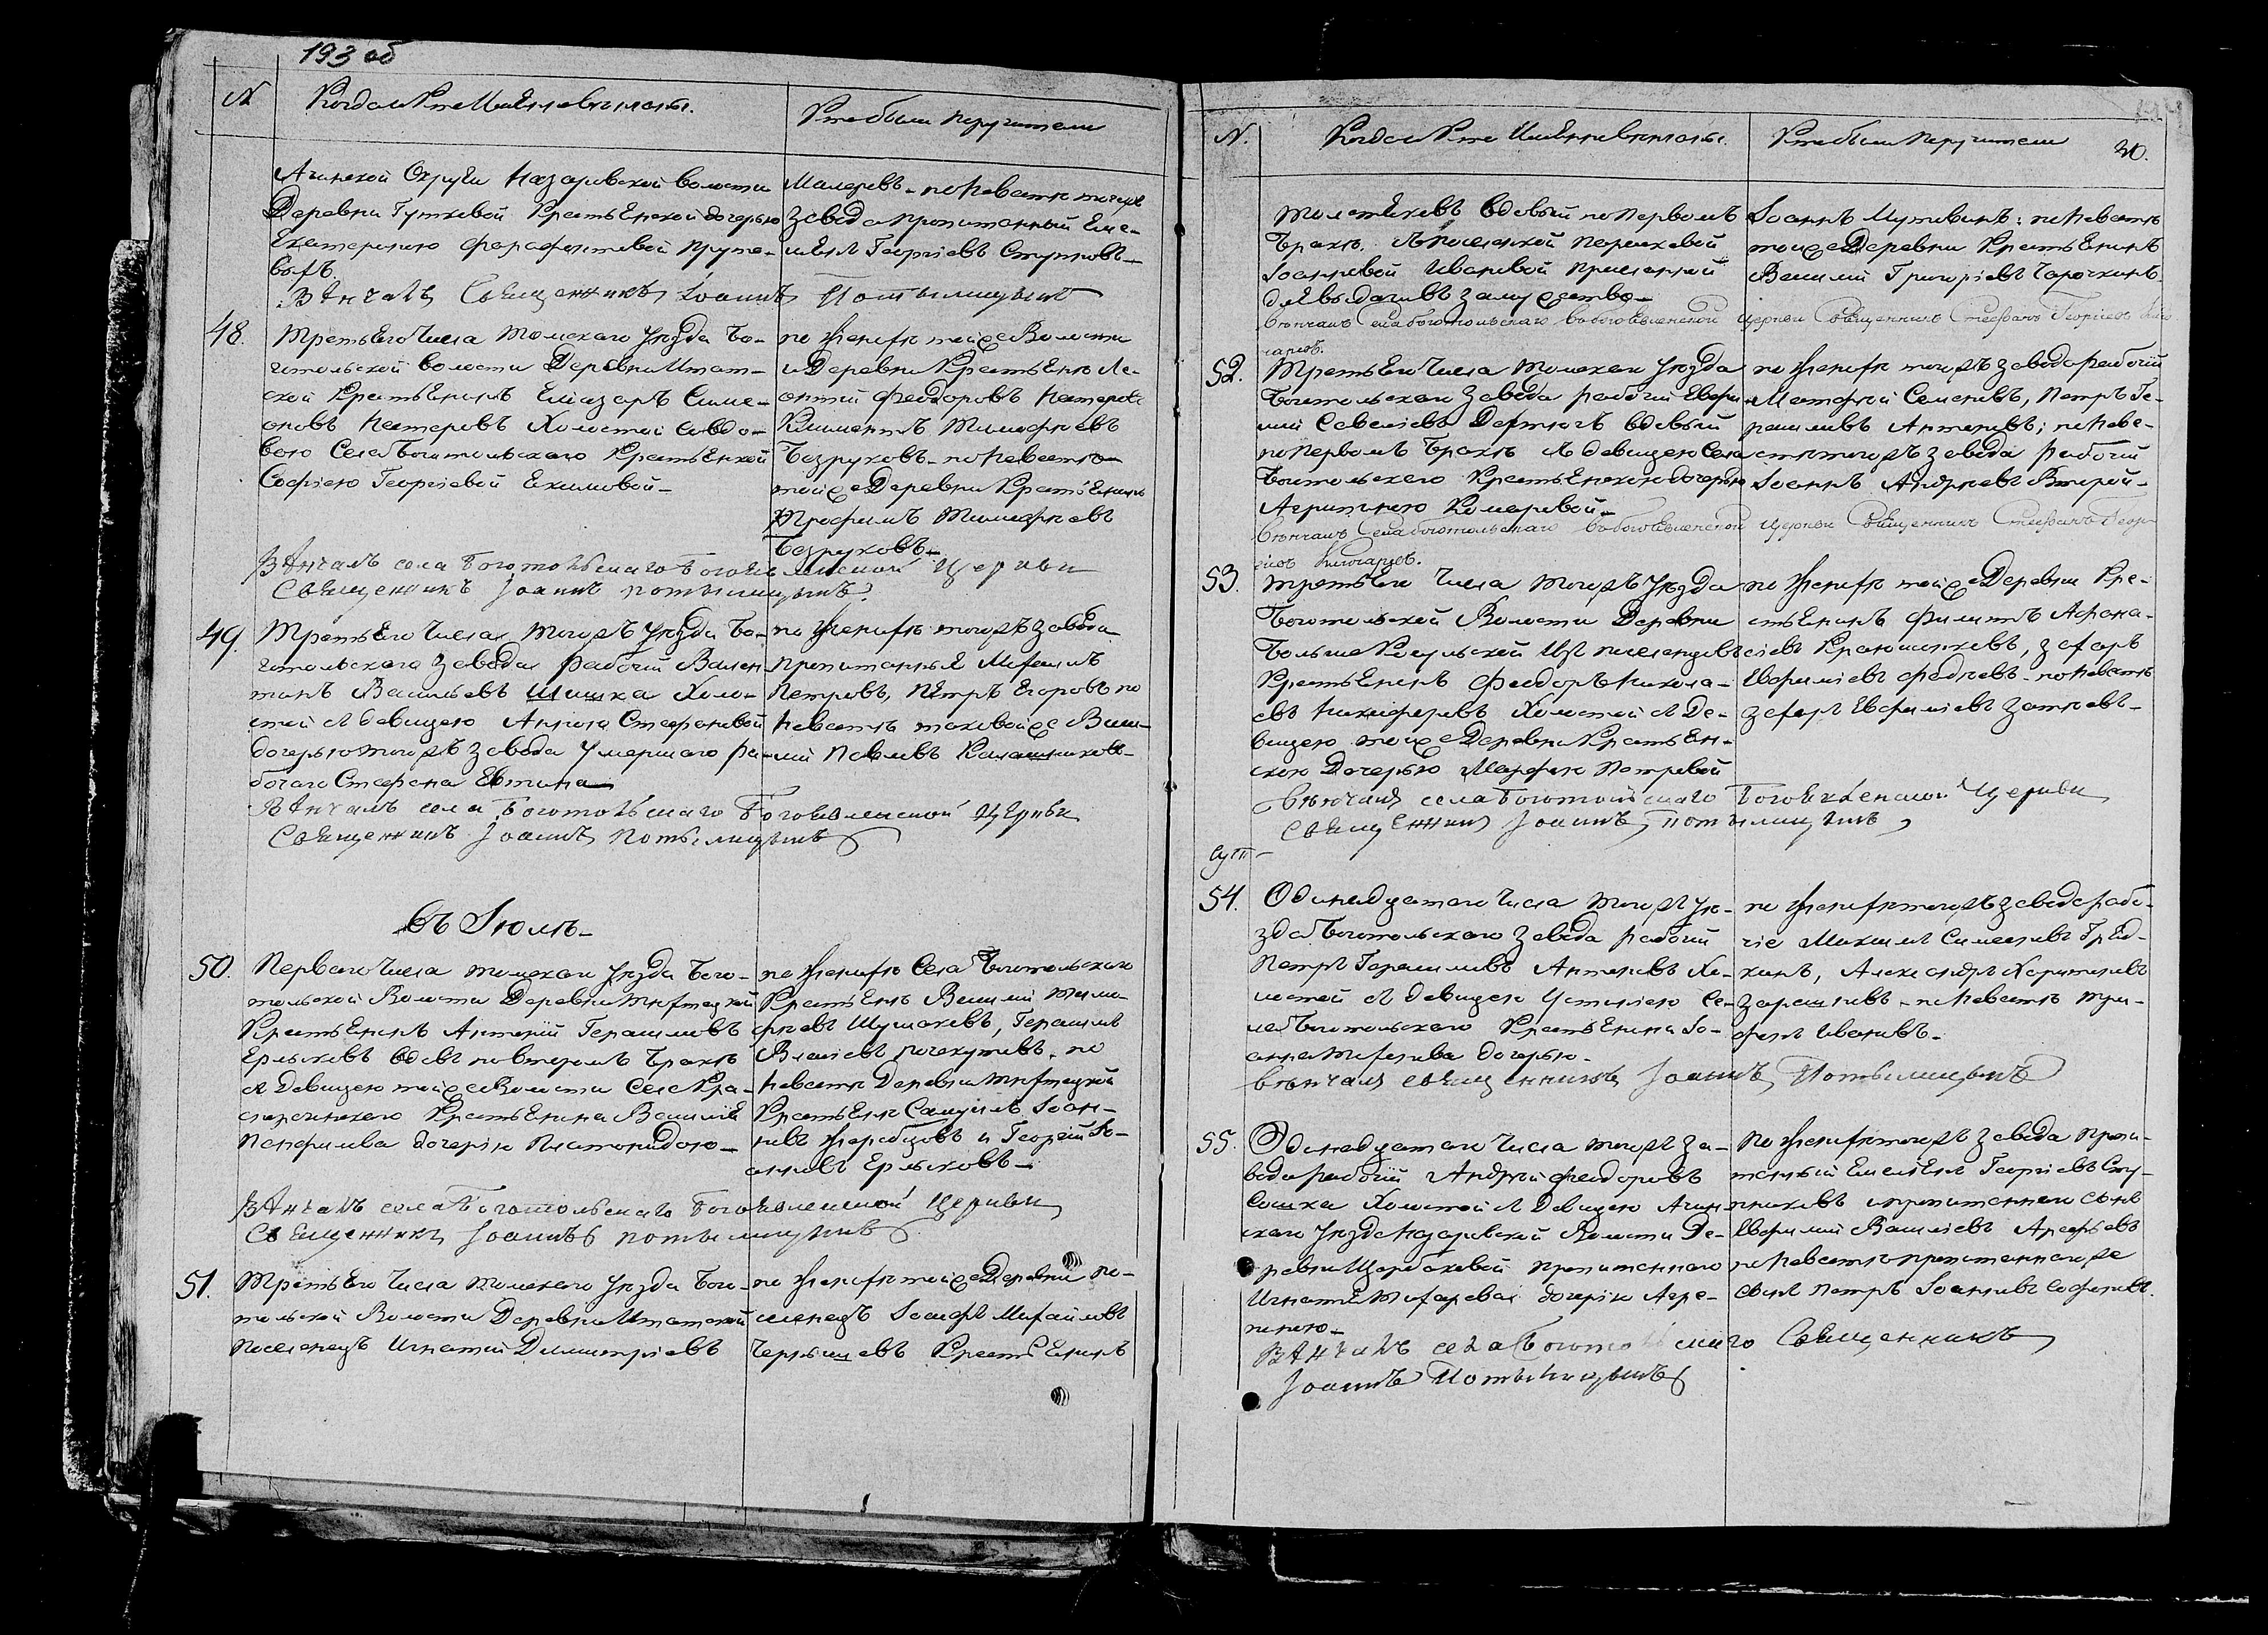 193 об
N
Когда и Кто Именно венчаны.
Кто были поручители
Ачинской Округи Назаровской волости
Деревни Гутковой Крестьянской дочерью
Екатериною Ферафонтовой
вых.
Венчалъ Священникъ Іоаннъ Потылицынъ
Малеровъ - по невестѣ тогожъ
завода пропитанный Еме-
льянъ Георгіевъ Ступковъ
48.
Третьяго Числа Томскаго Уѣзда Бо-
готольской волости Деревни Итат-
ской Крестьянинъ Елиазаръ Симе-
оновъ Нестеровъ Холостой со вдо-
вою Села Боготольскаго Крестьянкой
Софіею Георгіевой Екимовой
по женихѣ тойже Волости
и Деревни Крестьяне Ле-
онтій Феодоровъ Нестеровъ
Климентъ Тимофѣевъ
Безруковъ - по невестѣ
тойже Деревни Крестьянинъ
Трофимъ Тимофѣевъ
Безруковъ
Венчалъ села Боготольскаго Богоявленской Церкви
Священникъ Іоаннъ Потылицынъ
49.
Третьяго Числа тогожъ Уѣзда Бо-
готольскаго Завода рабочій Вален-
тинъ Васильевъ Шишка Холо-
стой съ девицею Анною Стефановой
дочерью тогожъ завода умершаго ра-
бочаго Стефана Евтина
по женихѣ тогожъ завода
пропитанные Михаилъ
Петровъ, Петръ Егоровъ по
невестѣ таковойже Васи-
лій Павловъ Калашниковъ
Венчалъ села Боготольскаго Богоявленской Церкви
Священникъ Іоаннъ Потылицынъ
въ Іюлѣ
50.
Перваго Числа Томскаго Уѣзда Бого-
тольской Волости Деревни Тюхтецкой
Крестьянинъ Антоній Герасимовъ
Ерлыковъ вдовъ по второмъ Бракѣ
съ Девицею тойже Волости Села Кра-
снореченскаго Крестьянина Василія
Панфилова дочерію Платонидою
по женихѣ Села Боготольскаго
Крестьяне Василій Тимо-
фѣевъ Шумаковъ, Герасимъ
Власіевъ Почекутовъ, по
невестѣ Деревни Тюхтецкой
Крестьяне Самуилъ Іоан-
новъ Жеребцовъ и Георгій Іо-
анновъ Ерлыковъ
Венчалъ села Боготольскаго Богоявленской Церкви
Священникъ Іоаннъ Потылицынъ
51.
Третьяго Числа Томскаго Уѣзда Бого-
тольской Волости Деревни Итатской
Поселенецъ Игнатій Димитріевъ
по женихѣ тойже Деревни по-
селенецъ Іосифъ Михайловъ
Чернышевъ Крестьянинъ
N.
Когда и Кто Именно венчаны.
Кто были поручители
20.
Толстиковъ вдовый по первомъ
Бракѣ. съ поселенской Парасковой
Іоанновой Ивановой присланной
для выдачи въ замужество
Іоаннъ Мутовинъ: по невестѣ
тойже Деревни Крестьянинъ
Василій Григоріевъ Чарочкинъ
Вѣнчалъ Села Боготольскаго Богоявленской Церкви Священникъ Стефанъ Георгіевъ
52.
Третьяго Числа Томскаго Уѣзда
Боготольскаго Завода рабочій Евфи-
мій Савеліевъ Дертюгъ вдовый
по первомъ Бракѣ съ девицею Села
Боготольскаго Крестьянскою дочерью
Агрипиною Комаровой
по женихѣ тогожъ завода рабочій
Матфей Семеновъ, Петръ Ге-
расимовъ Антоновъ; по неве-
стѣ тогожъ завода рабочій
Іоаннъ Андреевъ Второй
Вѣнчалъ Села Боготольскаго Богоявленской Церкви Священникъ Стефанъ Геор-
гіевъ
53.
Третьяго Числа тогожъ Уѣзда
Боготольской Волости Деревни
Больше Косульской Изъ поселенцевъ
Крестьянинъ Феодоръ Никола-
евъ Никифоровъ Холостой съ Де-
вицею тойже Деревни Крестьян-
скою Дочерью Марфою Петровой
по женихѣ тойже Деревни Кре-
стьянинъ Филиппъ Афана-
сіевъ Краюшкиковъ, Захаръ
Евфиміевъ Фадѣевъ - по невестѣ
Захаръ Евфиміевъ Затѣевъ
Вѣнчалъ села Боготольскаго Богоявленской Церкви
Священникъ Іоаннъ Потылицынъ
54.
Одинадцатаго Числа тогожъ Уѣ-
зда Боготольскаго Завода рабочій
Петръ Герасимовъ Антоновъ Хо-
лостой съ девицею Устиніею Се-
ла Боготольскаго Крестьянина Іо-
анна Тифанова дочерью
по женихѣ тогожъ завода рабо-
чіе Михаилъ Симеоновъ Гряд-
кинъ, Александръ Харитоновъ
- по невестѣ Три-
фонъ Ивановъ
Вѣнчалъ Священникъ Іоаннъ Потылицынъ
55.
Одинадцатаго Числа тогожъ За-
вода рабочій Андрей Феодоровъ
Сошка Холостой съ Девицею Ачин-
скаго Уѣзда Назаровской Волости Де-
ревни Щербаковой пропитаннаго
Игнатія Токарева дочерію Агре-
пиною
По женихѣ тогожъ завода пропи-
танный Емельянъ Георгіевъ Сту-
пниковъ и пропитаннаго сынъ
Евфимій Василіевъ Арефьевъ
по невестѣ пропитаннагоже
сынъ Петръ Іоанновъ Софоновъ
Венчалъ села Боготольскаго Священникъ
Іоаннъ Потылицынъ